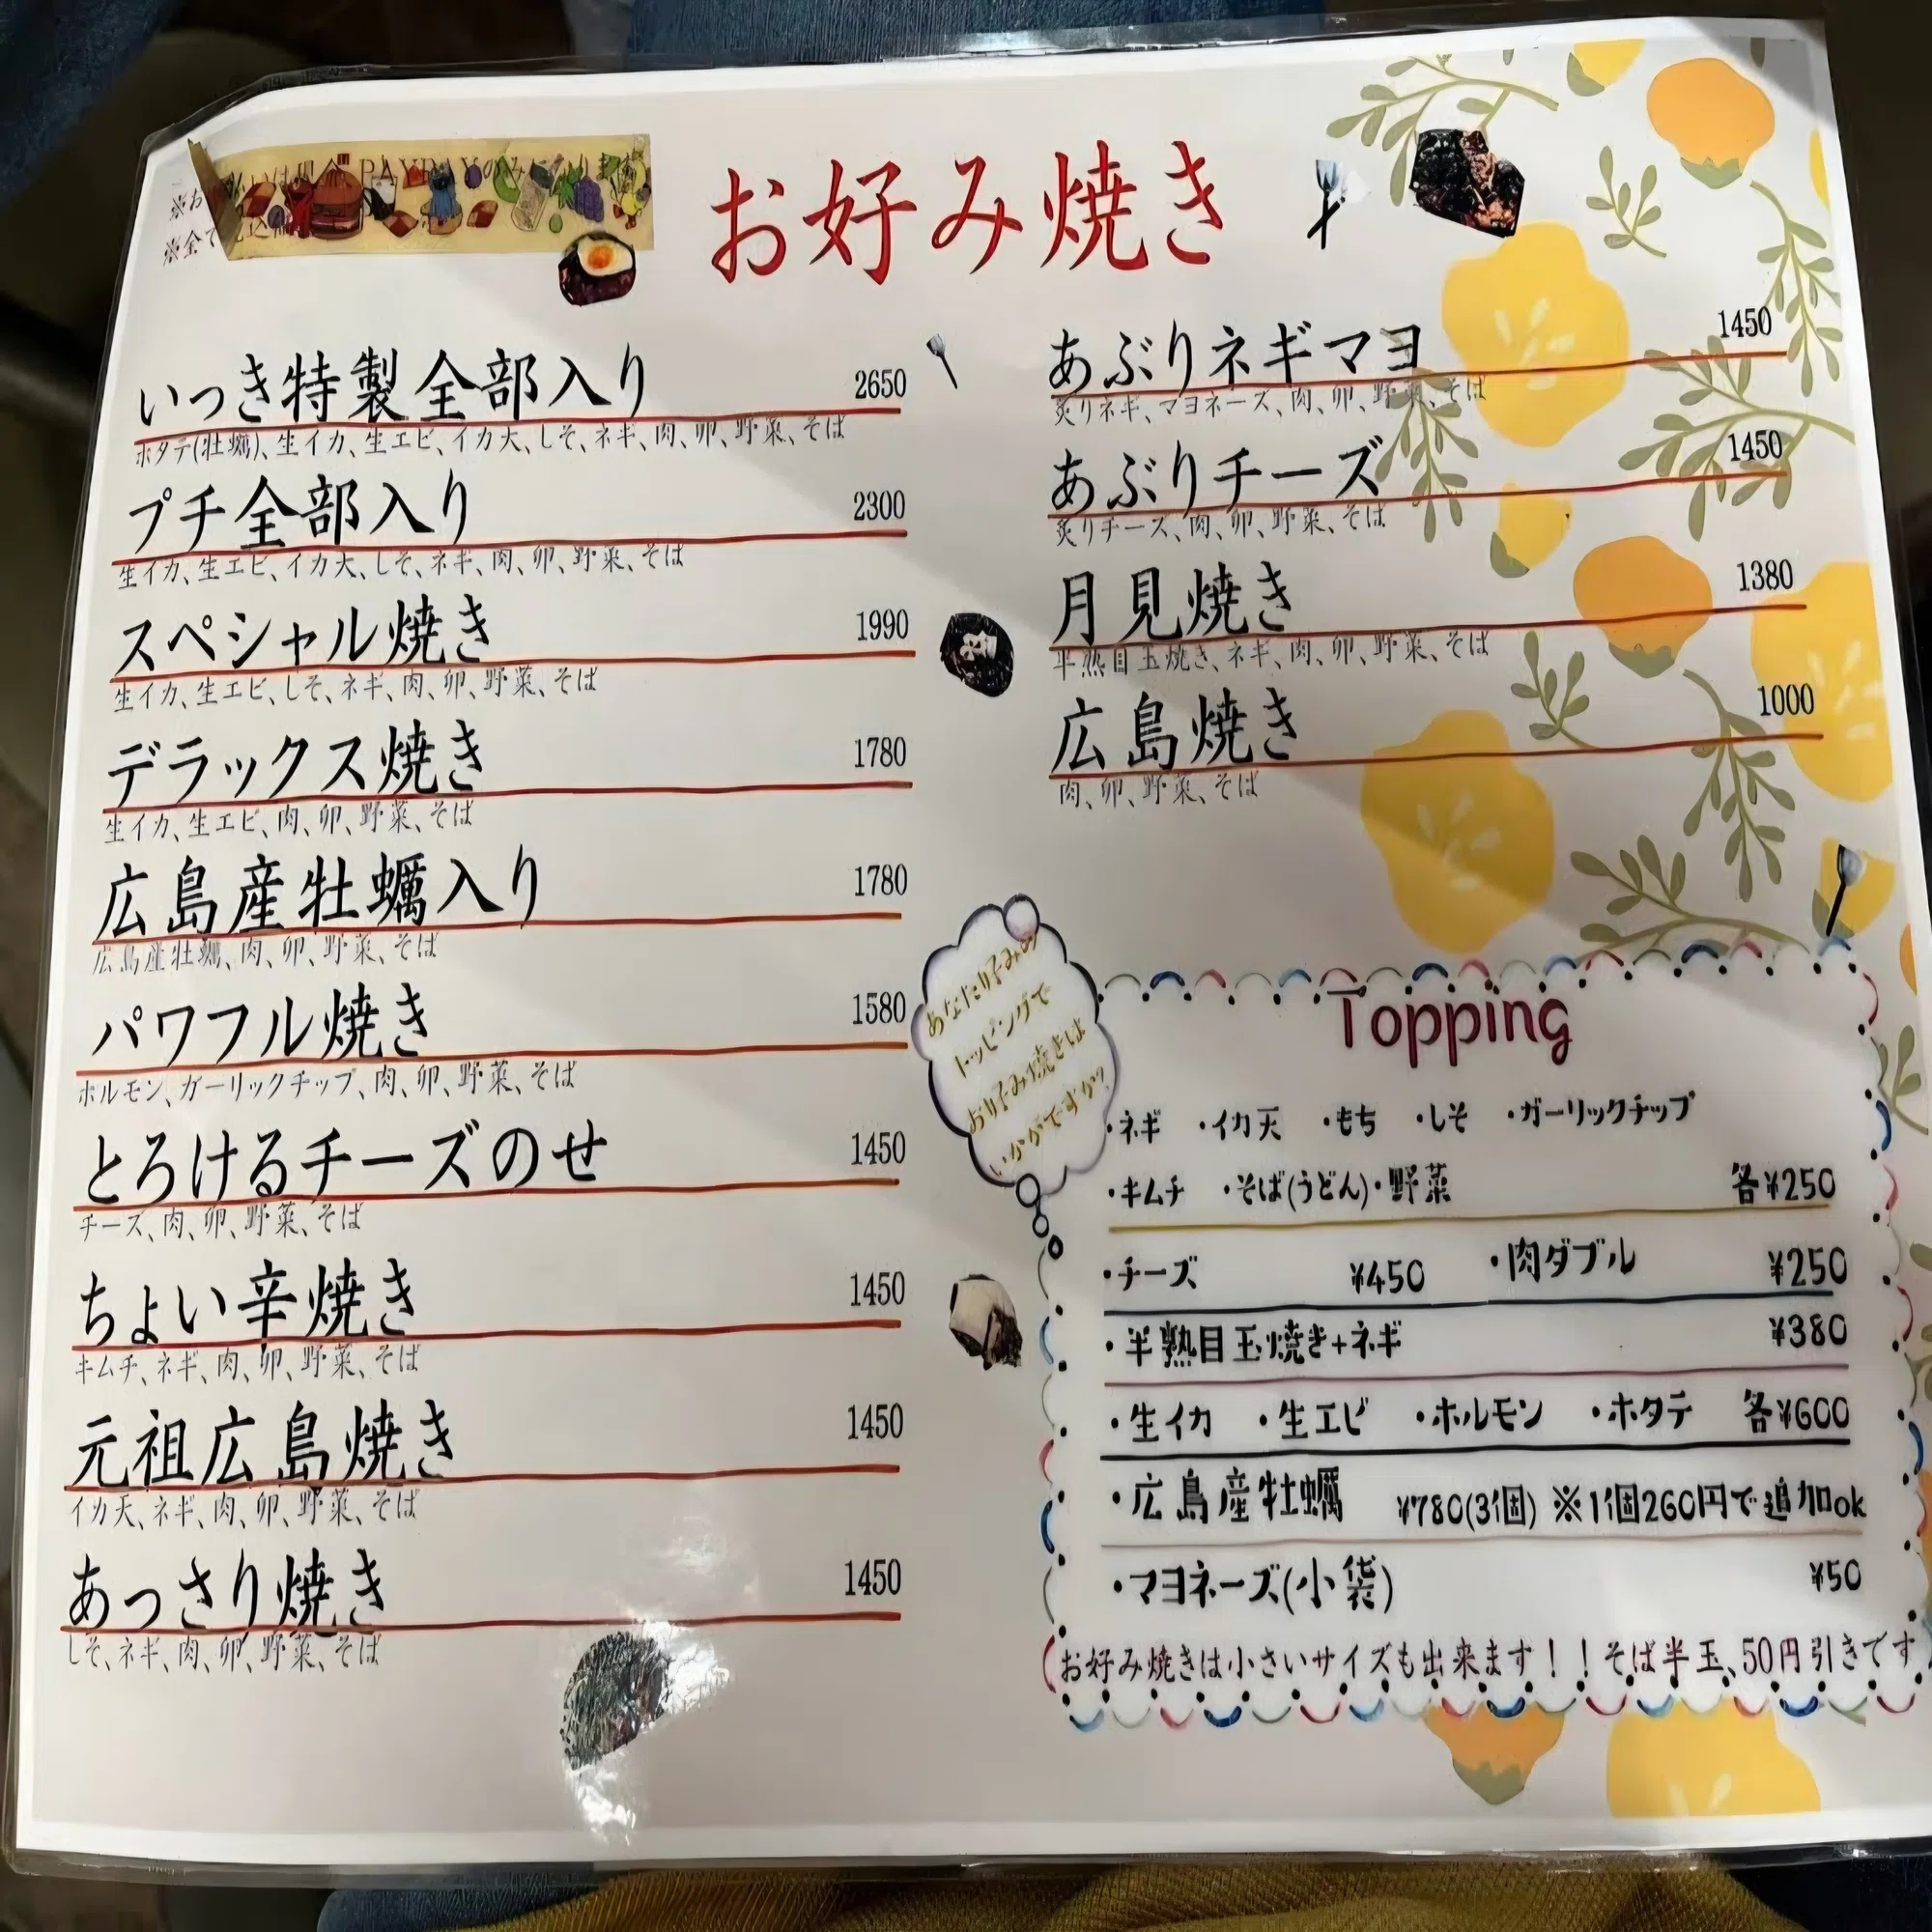 お好み焼き
いっき特製全部入り 2650
ホタテ(牡蠣)、生イカ、生エビ、イカ天、しそ、ネギ、肉、卵、野菜、そば
プチ全部入り 2300
生イカ、生エビ、イカ天、しそ、ネギ、肉、卵、野菜、そば
スペシャル焼き 1990
生イカ、生エビ、しそ、ネギ、肉、卵、野菜、そば
デラックス焼き 1780
生イカ、生エビ、肉、卵、野菜、そば
広島産牡蠣入り 1780
広島産牡蠣、肉、卵、野菜、そば
パワフル焼き 1580
ホルモン、ガーリックチップ、肉、卵、野菜、そば
とろけるチーズのせ 1450
チーズ、肉、卵、野菜、そば
ちょい辛焼き 1450
キムチ、ネギ、肉、卵、野菜、そば
元祖広島焼き 1450
イカ天、ネギ、肉、卵、野菜、そば
あっさり焼き 1450
しそ、ネギ、肉、卵、野菜、そば
あぶりネギマヨ 1450
炙りネギ、マヨネーズ、肉、卵、野菜、そば
あぶりチーズ 1450
炙りチーズ、肉、卵、野菜、そば
月見焼き 1380
半熟目玉焼き、ネギ、肉、卵、野菜、そば
広島焼き 1000
肉、卵、野菜、そば
あなた好みの
トッピングで
お好み焼きは
いかがですか?
Topping
・ネギ ・イカ天 ・もち ・しそ ・ガーリックチップ
・キムチ ・そば(うどん)・野菜 各¥250
・チーズ ¥450 ・肉ダブル ¥250
・半熟目玉焼き+ネギ ¥380
・生イカ ・生エビ ・ホルモン ・ホタテ 各¥600
・広島産牡蠣 ¥780(3個) ※1個260円で追加ok
・マヨネーズ(小袋) ¥50
お好み焼きは小さいサイズも出来ます!!そば半玉、50円引きです